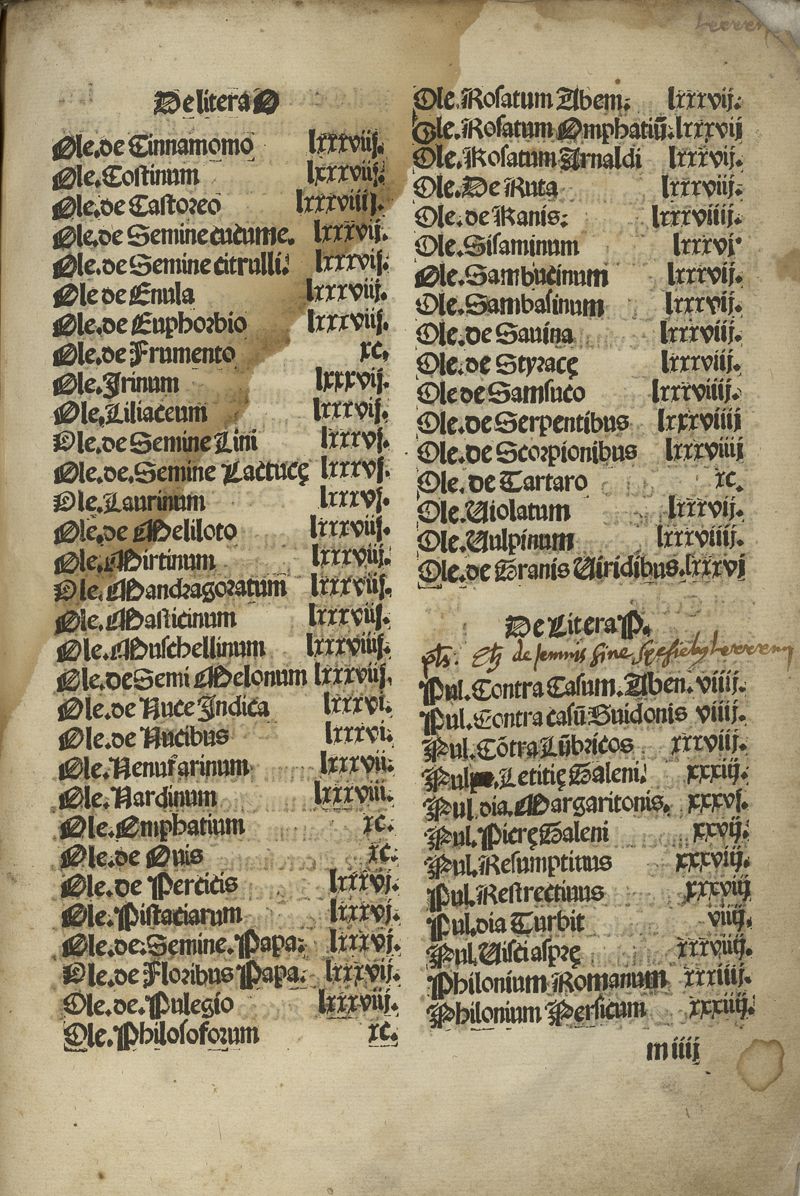 De litera O
Ole.de Cinnamomo lxxxviij.
Ole.Costinum lxxxviij.
Ole.de Castoreo lxxxviiij.
Ole.de Semine cucume. lxxxvij.
Ole.de Semine citrulli. lxxxvij.
Ole de Enula lxxxviij.
Ole.de Euphorbio lxxxviij.
Ole.de Frumento xc.
Ole.Irinum lxxxvij.
Ole.Liliaceum lxxxvij.
Ole.de Semine Lini lxxxvj.
Ole.de.Semine Lactucę lxxxvj.
Ole.Laurinum lxxxvj.
Ole.de Meliloto lxxxviij.
Ole.Mirtinum lxxxviij.
Ole.Mandragoratum lxxxviij.
Ole.Masticinum lxxxviij.
Ole.Muschellinum lxxxviiij.
Ole.de Semi Melonum lxxxviij.
Ole.de Nuce Indica lxxxvi.
Ole.de Nucibus lxxxvi.
Ole.Nenufarinum lxxxvii.
Ole.Nardinum lxxxviii.
Ole.Omphatium xc.
Ole.de Ouis xc.
Ole.de Percicis lxxxvj.
Ole.Pistaciarum lxxxvj.
Ole.de.Semine.Papa. lxxxvj.
Ole.de Floribus Papa. lxxxvij.
Ole.de.Pulegio lxxxviij.
Ole.Philosoforum xc.
Ole.Rosatum Abem. lxxxvij.
Ole.Rosatum Omphatiũ.lxxxvij
Ole.Rosatum Arnaldi lxxxvij.
Ole.De Ruta lxxxviij.
Ole.de Ranis. lxxxviiij.
Ole.Sisaminum lxxxvj.
Ole.Sambucinum lxxxvij.
Ole.Sambasinum lxxxvij.
Ole.de Sauina lxxxviij.
Ole.de Styracę lxxxviij.
Ole de Samsuco lxxxviiij.
Ole.de Serpentibus lxxxviiij
Ole.de Scorpionibus lxxxviiij
Ole.de Tartaro xc.
Ole.Uiolatum lxxxvij.
Ole.Uulpinum lxxxviiij.
Ole.de Granis Uiridibus.lxxxvj
De Litera P.
de sine
Pul.Contra Casum.Aben.viiij.
Pul.Contra casũ Guidonis viiij.
Pul.Cõtra Lũbricos xxxviij.
Pul.Letitię Galeni. xxxiij.
Pul dia.Margaritonis. xxxvj.
Pul.Picrę Galeni xxvij.
Pul.Resumptiuus xxxviij.
Pul.Restrectiuus xxxviij
Pul.dia Turbit viiij.
Pul.Uisci asprę xxxviij.
Philonium Romanum xxxiiij.
Philonium Persicum xxxiiij.
m iiij